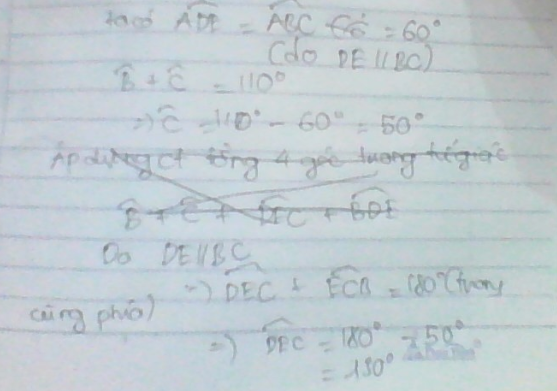 ta có ADE = ABC = 60°
(do DE // BC)
B + C = 110°
=> C = 110° - 60° = 50°
Áp dụng ct tổng 4 góc trong tứ giác
B + C + DEC + BDE
Do DE // BC
=> DEC + ECB = 180° (trong
cùng phía)
=> DEC = 180° - 50°
= 130°